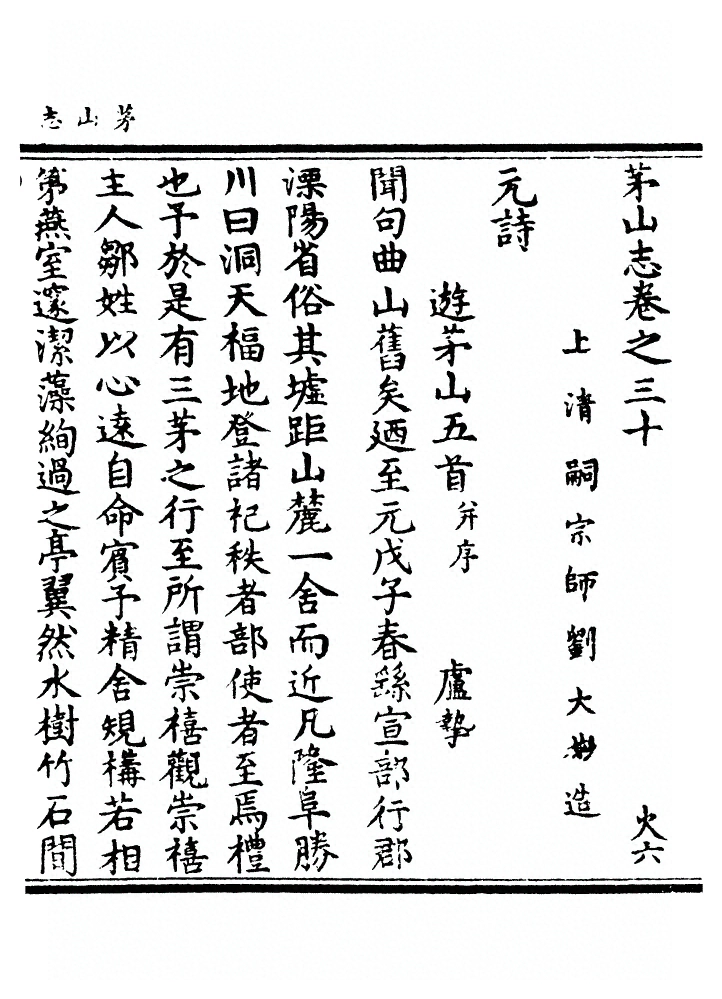 茅山志
茅山志卷之三十　火六
上清嗣宗師劉大彬造
元詩
遊茅山五首并序　盧摯
聞句曲山舊矣廼至元戊子春繇宣部行郡
溧陽省俗其墟距山麓一舍而近凡隆阜勝
川曰洞天福地登諸祀秩者部使者至焉禮
也予於是有三茅之行至所謂崇禧觀崇禧
主人鄒姓以心遠自命賓予精舍規構若相
第燕室邃潔藻絢過之亭翼然水樹竹石間